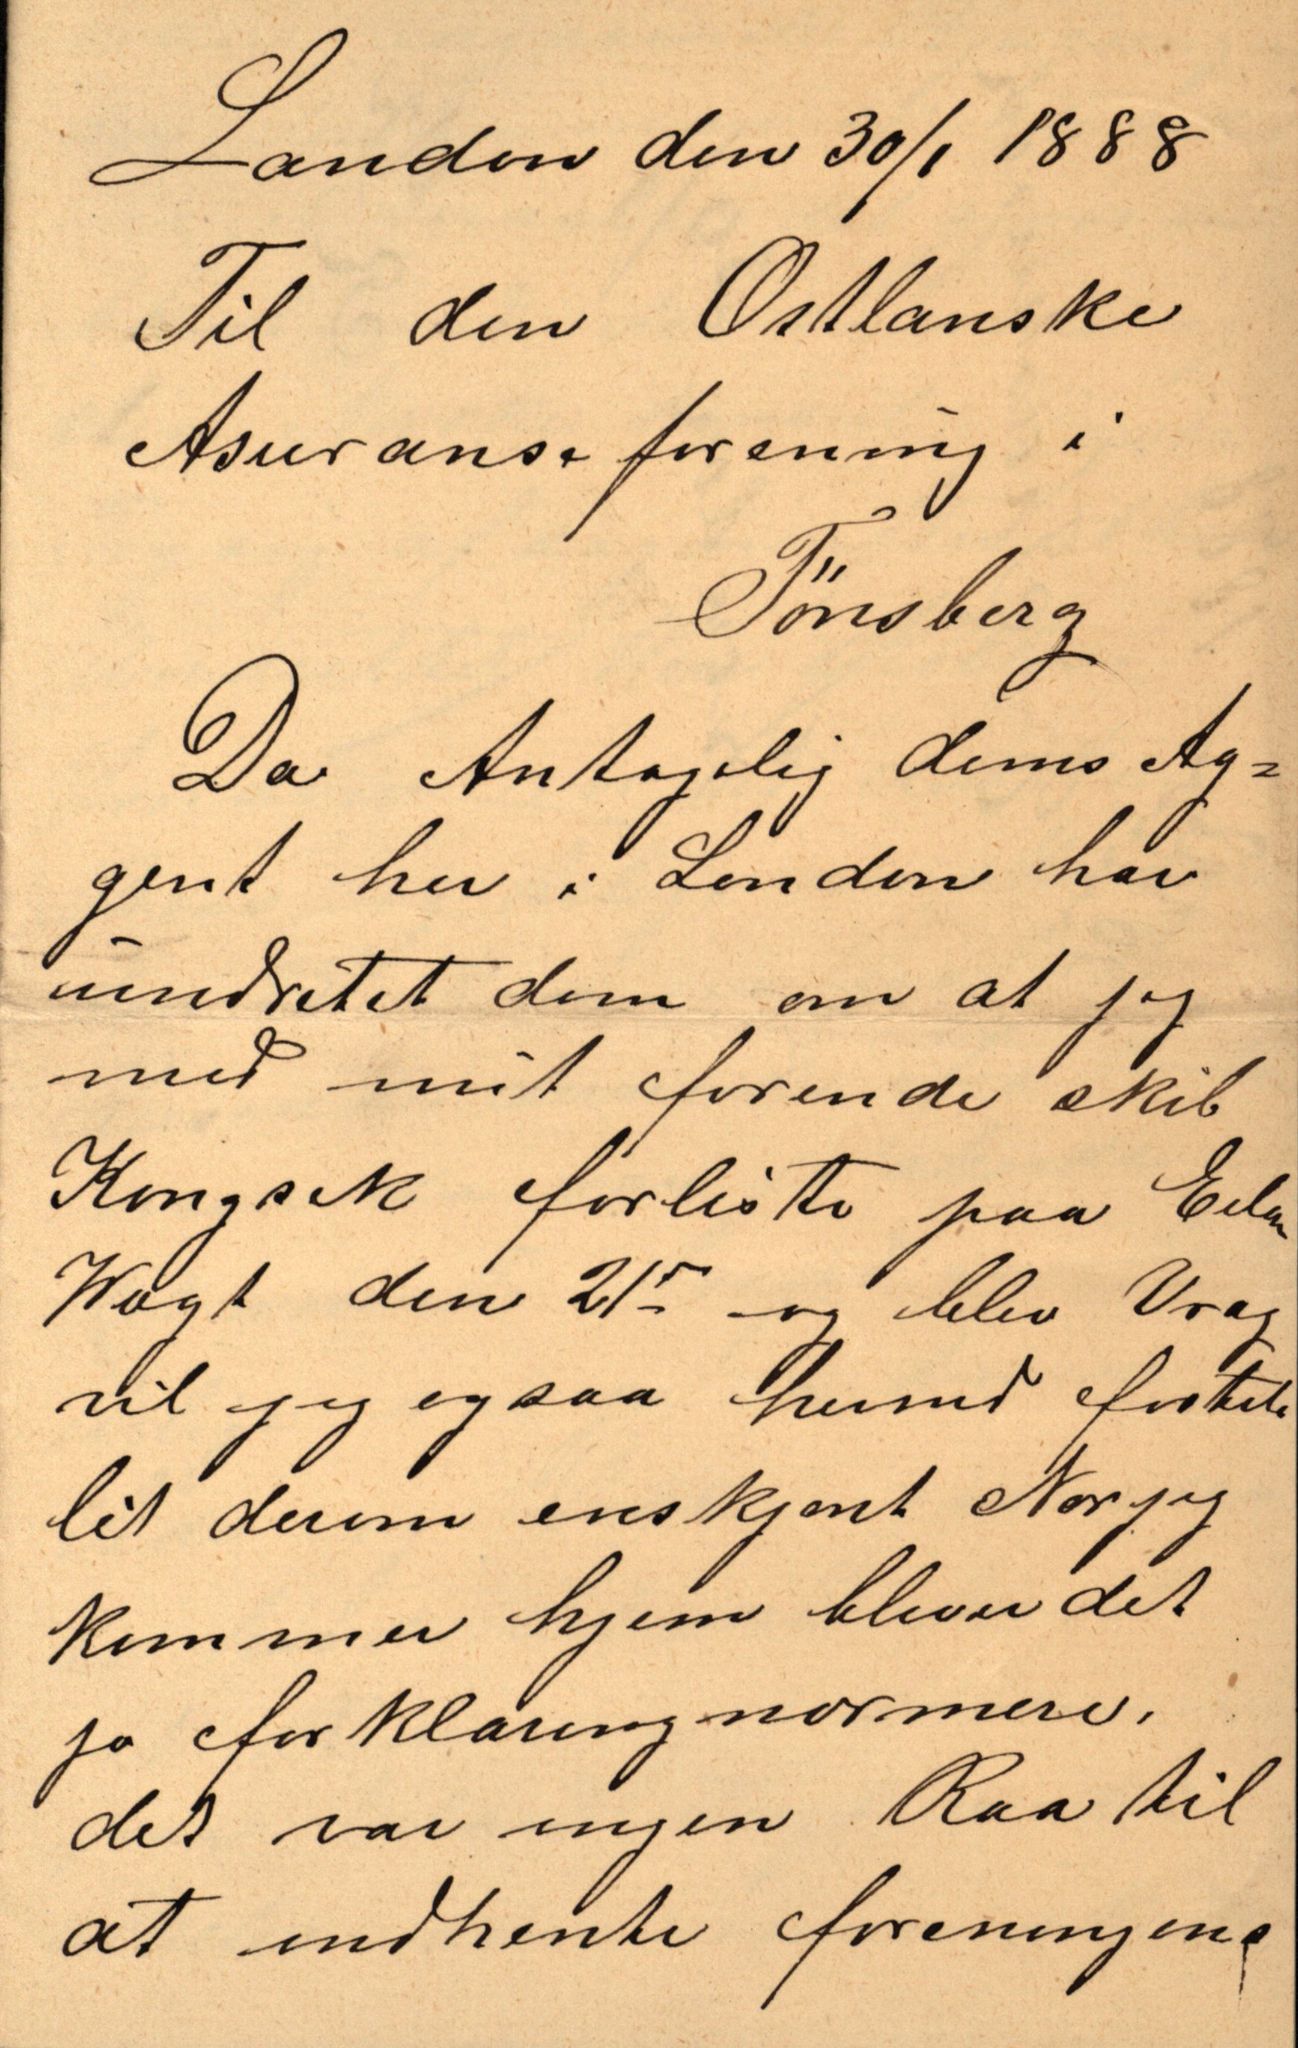 London den 30/1 1888
Til den Østlanske
Asuranseforening i
Tönsberg
Da Antagelig dems Ag=
gent her i London har
undretet dem om at jeg
med mit forende skib
Kongsek forliste paa
den 21 og blev Vrag
vil jeg ogsaa hermed
lit derom enskjönt Nor jeg
kommer hjem bliver det
jo forklaring nормere.
det var ingen Raa til
at indhente foreningens